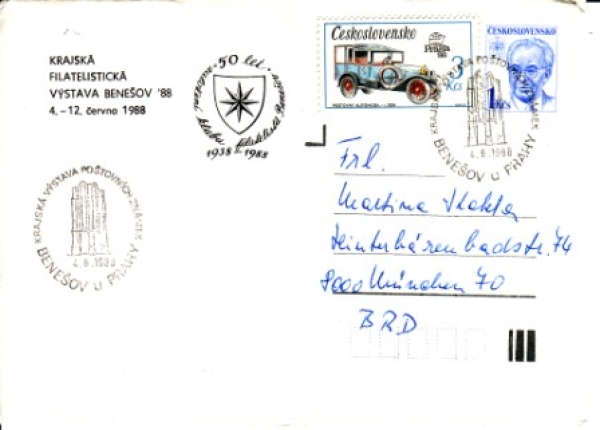 KRAJSKÁ
FILATELISTICKÁ
VÝSTAVA BENEŠOV '88
4.–12. června 1988
50 let
klubu filatelistů Benešov
1938 1988
Československo
Praha
3 Kčs
POŠTOVNÍ AUTOMOBIL
ČESKOSLOVENSKO
1 Kčs
KRAJSKÁ VÝSTAVA POŠTOVNÍCH ZNÁMEK
4.6.1988
BENEŠOV u PRAHY
KRAJSKÁ VÝSTAVA POŠTOVNÍCH ZNÁMEK
4.6.1988
BENEŠOV u PRAHY
Frl.
Martina
Hinterbärenbadstr. 74
8000 München 70
BRD